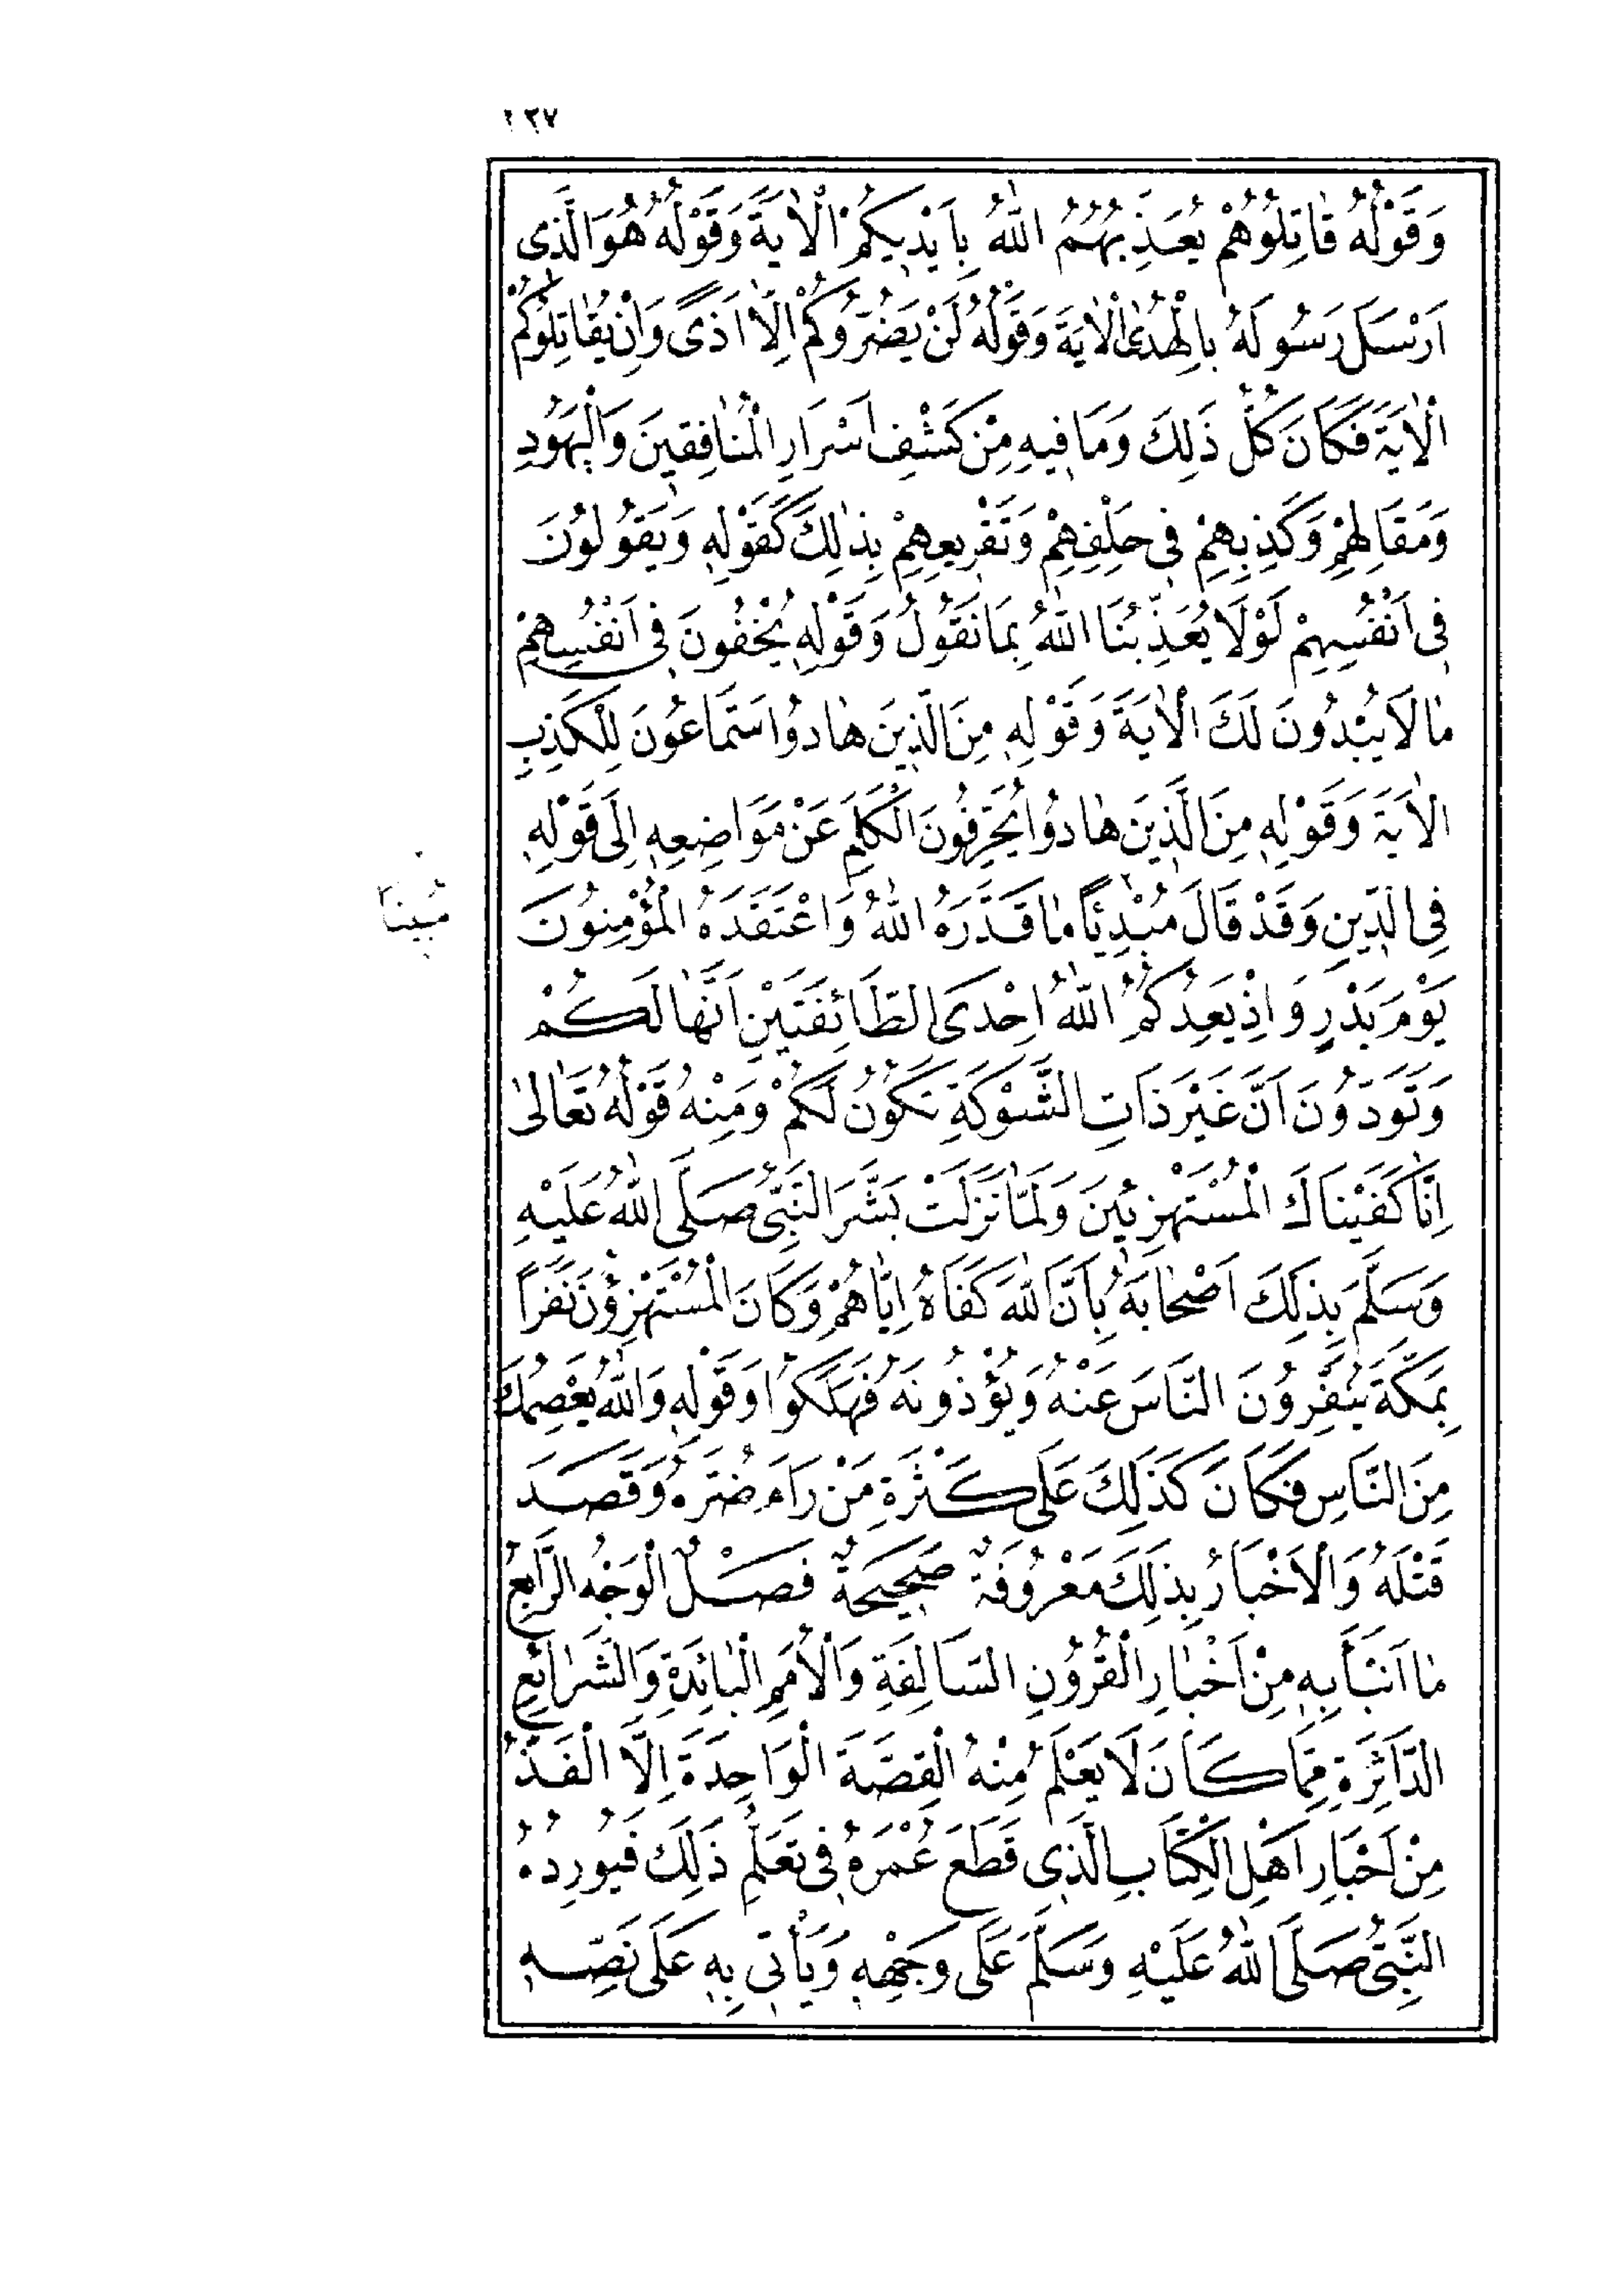 ٢٣٧
وَقَوْلُهُ قَاتِلُوهُمْ يُعَذِّبْهُمُ اللّٰهُ بِاَيْدِيكُمْ اَلْاٰيَةَ وَقَوْلُهُ هُوَ الَّذِى
اَرْسَلَ رَسُولَهُ بِالْهُدٰى الْاٰيَةَ وَقَوْلُهُ لَنْ يَضُرُّوكُمْ اِلَّا اَذًى وَاِنْ يُقَاتِلُوكُمْ
الْاٰيَةَ فَكَانَ كُلُّ ذَلِكَ وَمَا فِيهِ مِنْ كَشْفِ اَسْرَارِ الْمُنَافِقِينَ وَالْيَهُودِ
وَمَقَالِهِمْ وَكَذِبِهِمْ فِى حَلِفِهِمْ وَتَقْرِيعِهِمْ بِذٰلِكَ كَقَوْلِهِ وَيَقُولُونَ
فِى اَنْفُسِهِمْ لَوْلَا يُعَذِّبُنَا اللّٰهُ بِمَا نَقُولُ وَقَوْلِهِ يُخْفُونَ فِى اَنْفُسِهِمْ
مَا لَا يُبْدُونَ لَكَ الْاٰيَةَ وَقَوْلِهِ مِنَ الَّذِينَ هَادُوا سَمَّاعُونَ لِلْكَذِبِ
الْاٰيَةَ وَقَوْلِهِ مِنَ الَّذِينَ هَادُوا يُحَرِّفُونَ الْكَلِمَ عَنْ مَوَاضِعِهِ اِلَى قَوْلِهِ
فِى الدِّينِ وَقَدْ قَالَ مُبْدِيًا مَا قَدَّرَهُ اللّٰهُ وَاعْتَقَدَهُ الْمُؤْمِنُونَ
مُبِينًا
يَوْمَ بَدْرٍ وَاِذْ يَعِدُكُمُ اللّٰهُ اِحْدَى الطَّائِفَتَيْنِ اَنَّهَا لَكُمْ
وَتَوَدُّونَ اَنَّ غَيْرَ ذَاتِ الشَّوْكَةِ تَكُونُ لَكُمْ وَمِنْهُ قَوْلُهُ تَعَالٰى
اِنَّا كَفَيْنَاكَ الْمُسْتَهْزِئِينَ وَلَمَّا نَزَلَتْ بَشَّرَ النَّبِىُّ صَلَّى اللّٰهُ عَلَيْهِ
وَسَلَّمَ بِذَلِكَ اَصْحَابَهُ بِاَنَّ اللّٰهَ كَفَاهُ اِيَّاهُمْ وَكَانَ الْمُسْتَهْزِؤُنَ نَفَرًا
بِمَكَّةَ يُنَفِّرُونَ النَّاسَ عَنْهُ وَيُؤْذُونَهُ فَهَلَكُوا وَقَوْلِهِ وَاللّٰهُ يَعْصِمُكَ
مِنَ النَّاسِ فَكَانَ كَذَلِكَ عَلَى كَثْرَةِ مَنْ رَامَ ضَرَّهُ وَقَصَدَ
قَتْلَهُ وَالْاَخْبَارُ بِذَلِكَ مَعْرُوفَةٌ صَحِيحَةٌ فَصْلٌ الْوَجْهُ الرَّابِعُ
مَا اَنْبَأَ بِهِ مِنْ اَخْبَارِ الْقُرُونِ السَّالِفَةِ وَالْاُمَمِ الْبَائِدَةِ وَالشَّرَائِعِ
الدَّاثِرَةِ مِمَّا كَانَ لَا يَعْلَمُ مِنْهُ الْقِصَّةَ الْوَاحِدَةَ اِلَّا الْفَذُّ
مِنْ اَحْبَارِ اَهْلِ الْكِتَابِ الَّذِى قَطَعَ عُمْرَهُ فِى تَعَلُّمِ ذَلِكَ فَيُورِدُهُ
النَّبِىُّ صَلَّى اللّٰهُ عَلَيْهِ وَسَلَّمَ عَلَى وَجْهِهِ وَيَأْتِى بِهِ عَلَى نَصِّهِ